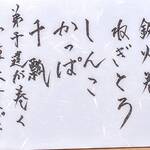 鉄火巻
ねぎとろ
しんこ
かっぱ
干瓢
弟子達が巻く